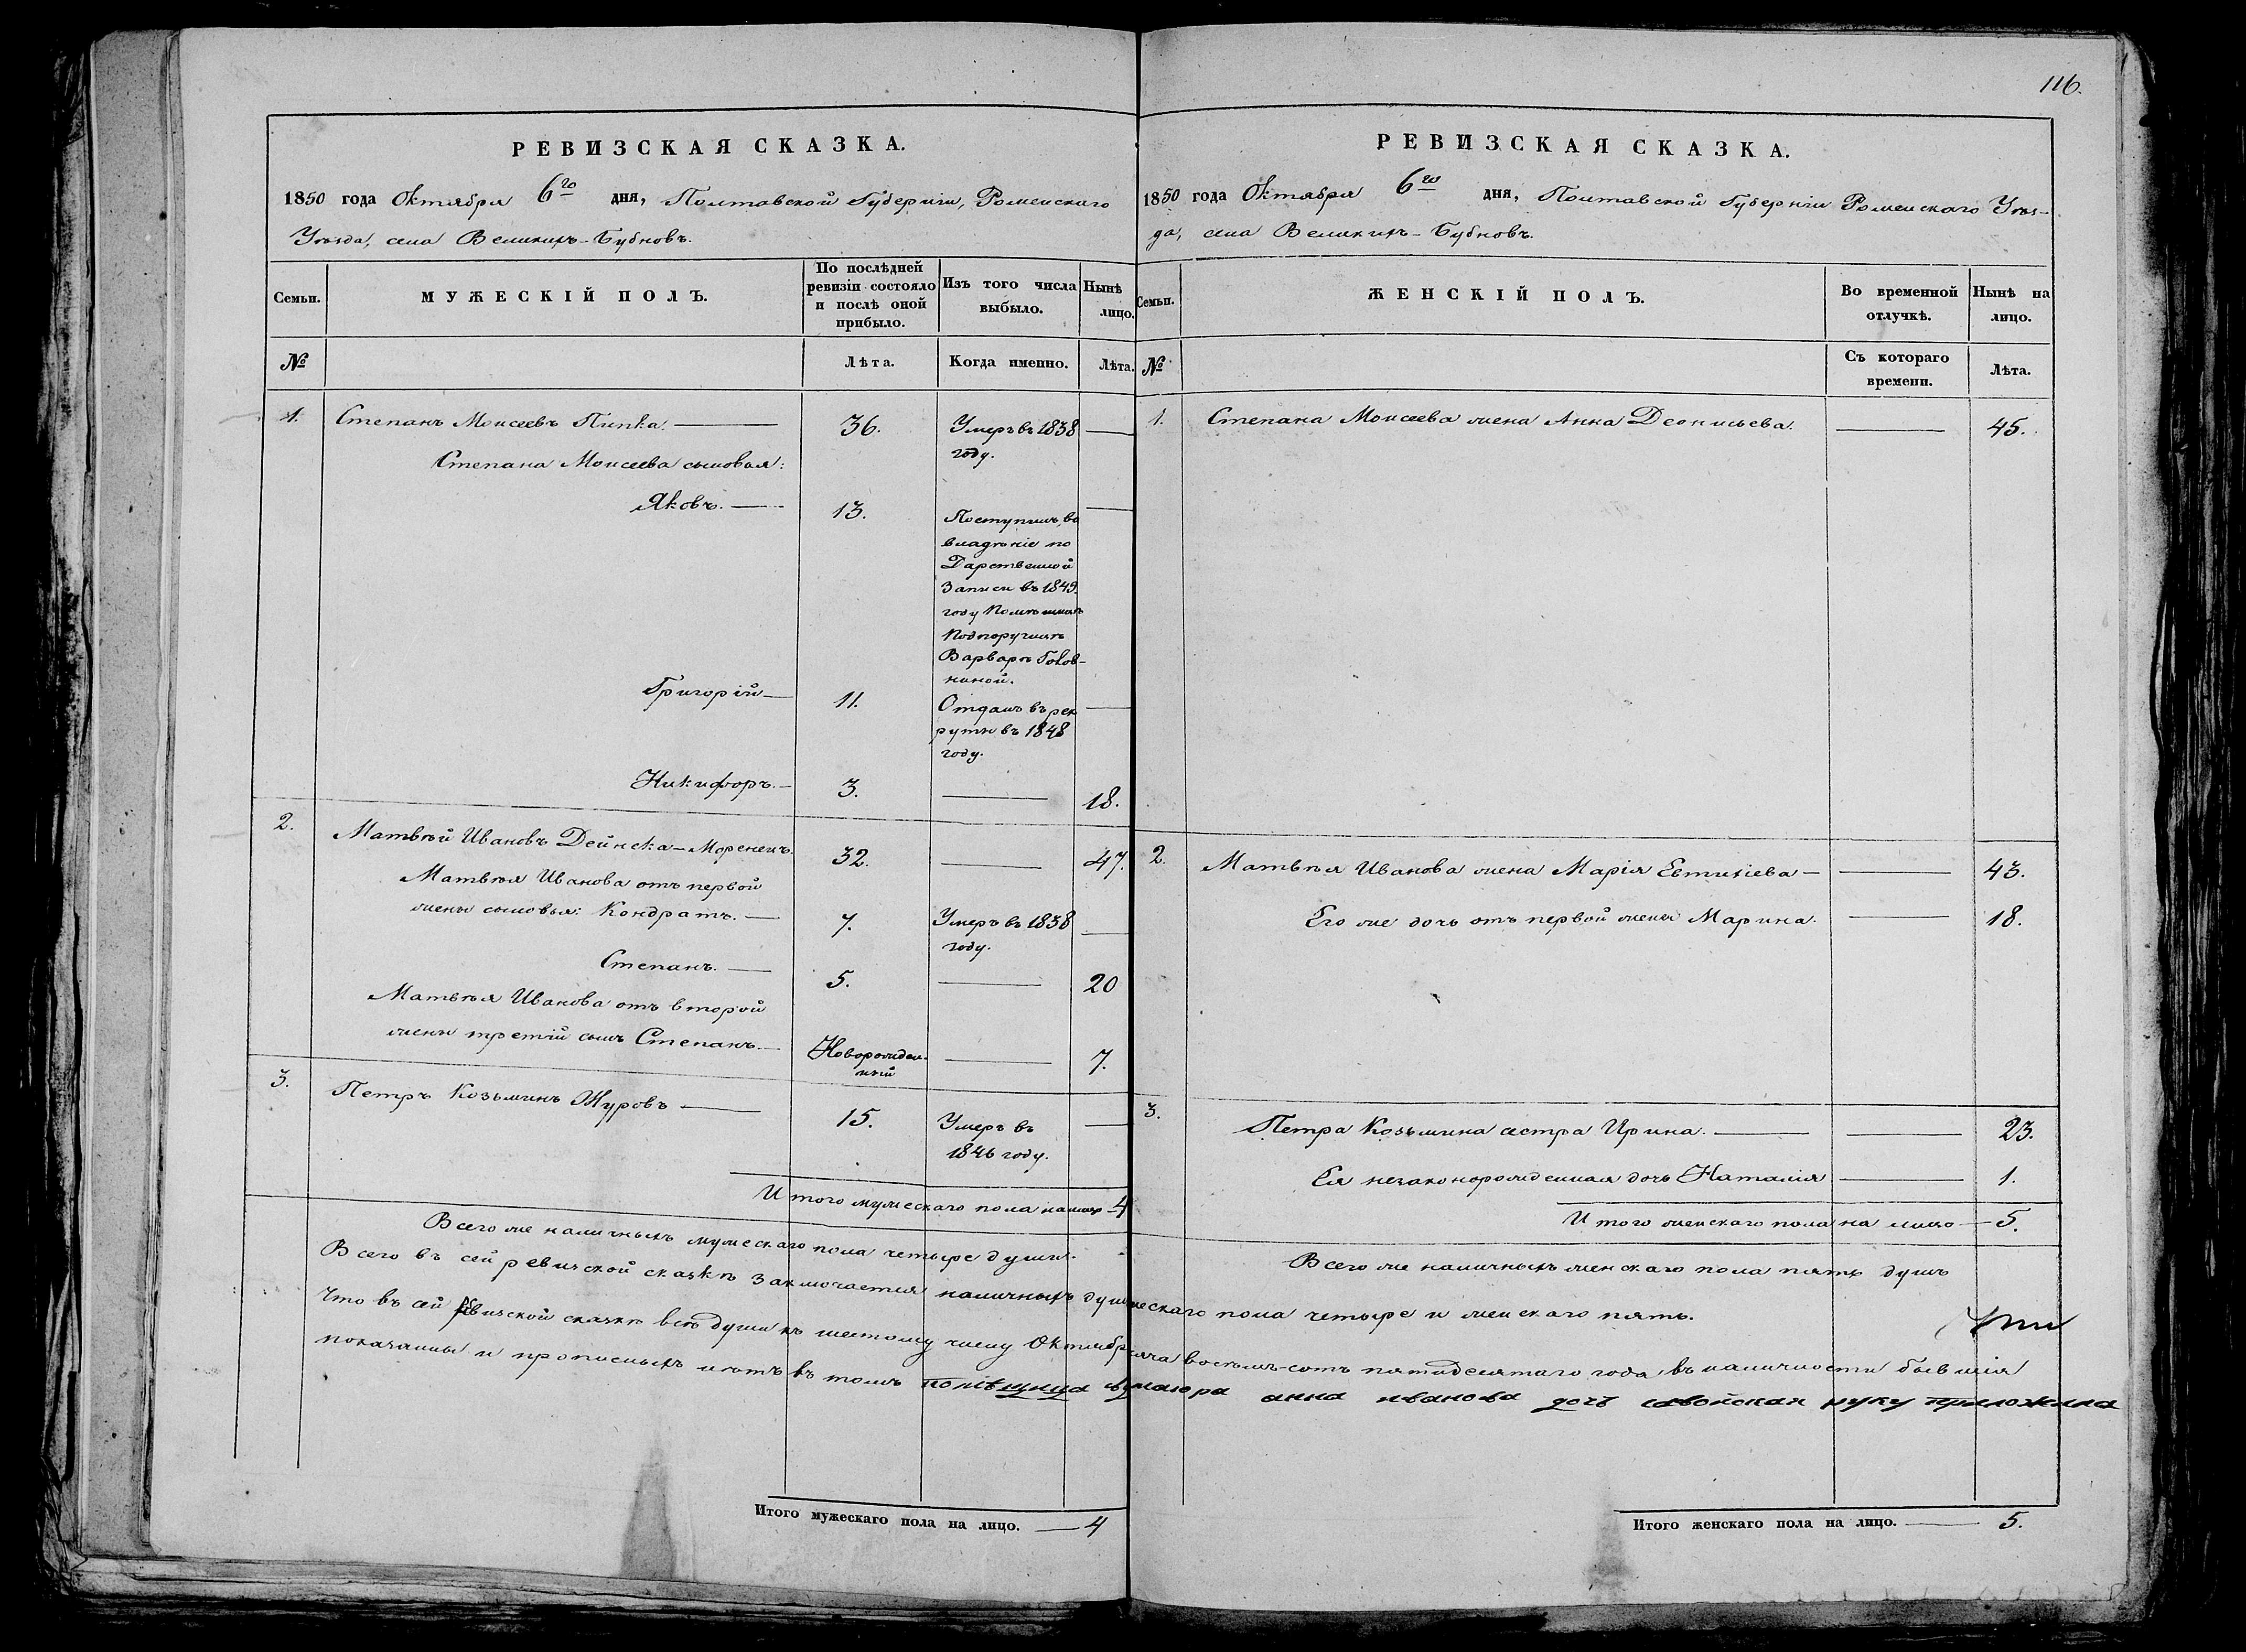 116.
РЕВИЗСКАЯ СКАЗКА.
1850 года Октября 6го дня, Полтавской Губерніи, Роменскаго
Уѣзда, села Великихъ-Бубновъ.
Семьи.
МУЖЕСКІЙ ПОЛЪ.
По послѣдней
ревизіи состояло
и послѣ оной
прибыло.
Изъ того числа
выбыло.
Нынѣ
лицо.
№
Лѣта.
Когда именно.
Лѣта.
1. Степанъ Моисеевъ Пипка. — 36. Умеръ въ 1838 —
году.
Степана Моисеева сыновья:
Яковъ. — 13. —
Поступилъ во
владѣніе по
Дарственной
Записи въ 1849
году Помѣщицѣ
Подпоручицѣ
Варварѣ Голов-
ниной.
Григорій — 11. Отданъ въ рек —
руты въ 1848
году.
Никифоръ. — 3. — 18.
2. Матвѣй Ивановъ Дейнека-Моренецъ. 32. — 47.
Матвѣя Иванова отъ первой
жены сыновья: Кондратъ. — 7. Умеръ въ 1838 —
году.
Степанъ. — 5. — 20
Матвѣя Иванова отъ второй
жены третій сынъ Степанъ. — Новорожден- — 7.
ный
3. Петръ Козьминъ Журовъ — 15. Умеръ въ —
1846 году.
Итого мужескаго пола на лицо — 4
Всего же наличныхъ мужескаго пола четыре души.
РЕВИЗСКАЯ СКАЗКА.
1850 года Октября 6го дня, Полтавской Губерніи Роменскаго Уѣз-
да, села Великихъ-Бубновъ.
Семьи.
ЖЕНСКІЙ ПОЛЪ.
Во временной
отлучкѣ.
Нынѣ на
лицо.
№
Съ котораго
времени.
Лѣта.
1. Степана Моисеева жена Анна Деонисьева. — 45.
2. Матвѣя Иванова жена Марія Евтихіева — — 43.
Его же дочь отъ первой жены Марина. — 18.
3. Петра Козьмина сестра Ирина. — — 23.
Ея незаконорожденная дочь Наталія — 1.
Итого женскаго пола на лицо — 5.
Всего же наличныхъ женскаго пола пять душъ
Всего въ сей ревизской сказкѣ заключается наличныхъ душъ мужескаго пола четыре и женскаго пять.
Что въ сей ревизской сказкѣ всѣ души къ шестому числу Октября восемь-сотъ пятидесятаго года въ наличности бывшія
показаны и прописныхъ нѣтъ въ томъ помѣщица анна иванова дочь руку приложила
Итого мужескаго пола на лицо. — 4
Итого женскаго пола на лицо. — 5.